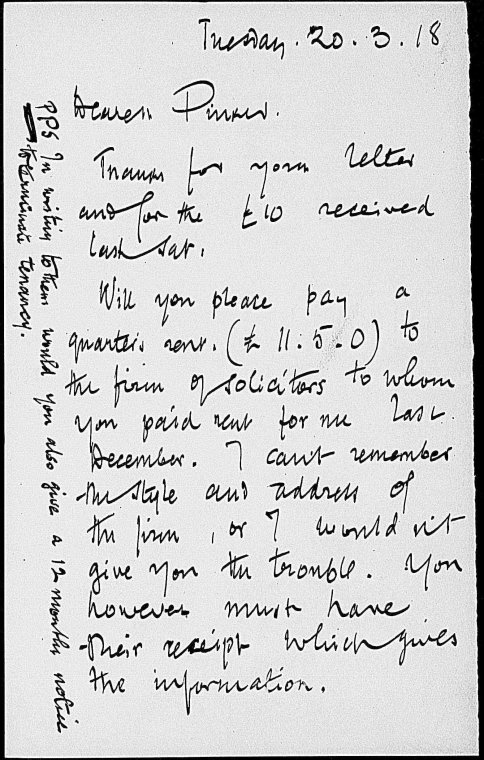 Tuesday. 20.3.18
Dearest Pinker.
Thanks for your letter
and for the £10 received
last Sat.
Will you please pay a
quarter's rent. (£ 11.5.0) to
the firm of solicitors to whom
you paid rent for me last
December. I can't remember
the style and address of
the firm, or I would not
give you the trouble. You
however must have
their receipt which gives
the information.
PPS In writing to them would you also give a 12 months notice
to terminate tenancy.